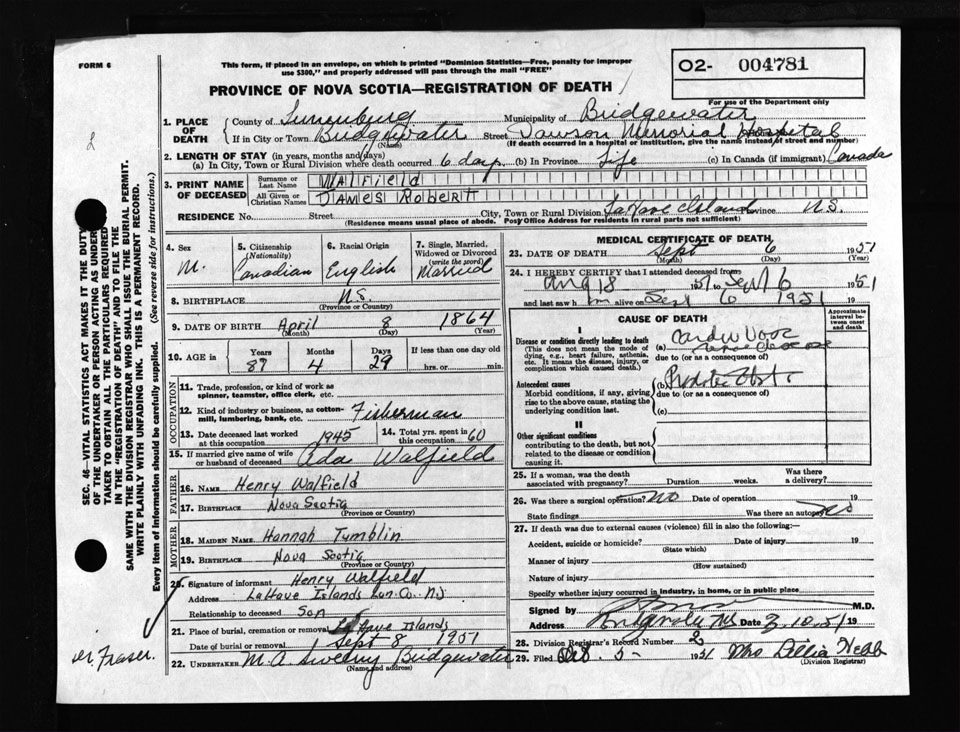 FORM 6
This form, if placed in an envelope, on which is printed "Dominion Statistics—Free, penalty for improper
use $300," and properly addressed will pass through the mail "FREE"
O2- 004781
For use of the Department only
PROVINCE OF NOVA SCOTIA—REGISTRATION OF DEATH
1. PLACE OF DEATH
County of Lunenburg Municipality of Bridgewater
If in City or Town Bridgewater Street Dawson Memorial Hospital
(Name) (If death occurred in a hospital or institution, give the name instead of street and number)
2. LENGTH OF STAY (in years, months and days)
(a) In City, Town or Rural Division where death occurred 6 days (b) In Province Life (c) In Canada (if immigrant) Canada
3. PRINT NAME OF DECEASED
Surname or Last Name Walfield
All Given or Christian Names JAMES RobERT
RESIDENCE No. Street City, Town or Rural Division LaHave Island Province N.S.
(Residence means usual place of abode. Post Office Address for residents in rural parts not sufficient)
4. Sex M.
5. Citizenship (Nationality) Canadian
6. Racial Origin English
7. Single, Married, Widowed or Divorced (write the word) Married
8. BIRTHPLACE N.S.
(Province or Country)
9. DATE OF BIRTH April 8 1864
(Month) (Day) (Year)
10. AGE in Years 87 Months 4 Days 29 If less than one day old
hrs. or min.
OCCUPATION
11. Trade, profession, or kind of work as
spinner, teamster, office clerk, etc.
12. Kind of industry or business, as cotton-
mill, lumbering, bank, etc. Fisherman
13. Date deceased last worked at this occupation 1945
14. Total yrs. spent in this occupation 60
15. If married give name of wife or husband of deceased Ada Walfield
FATHER
16. NAME Henry Walfield
17. BIRTHPLACE Nova Scotia
(Province or Country)
MOTHER
18. MAIDEN NAME Hannah Tumblin
19. BIRTHPLACE Nova Scotia
(Province or Country)
20. Signature of informant Henry Walfield
Address LaHave Islands Lun. Co. N.S
Relationship to deceased Son
21. Place of burial, cremation or removal LaHave Islands
Date of burial or removal Sept 8 1951
22. UNDERTAKER M. A Sweeny Bridgewater
(Name and address)
MEDICAL CERTIFICATE OF DEATH
23. DATE OF DEATH Sept 6 1951
(Month) (Day) (Year)
24. I HEREBY CERTIFY that I attended deceased from
Aug 18 1951 to Sept 6 1951
and last saw him alive on Sept 6 1951 19
CAUSE OF DEATH
Approximate interval between onset and death
I
Disease or condition directly leading to death
(This does not mean the mode of dying, e.g., heart failure, asthenia, etc. It means the disease, injury, or complication which caused death.)
(a)
due to (or as a consequence of)
Antecedent causes
Morbid conditions, if any, giving rise to the above cause, stating the underlying condition last.
(b)
due to (or as a consequence of)
(c)
II
Other significant conditions
contributing to the death, but not related to the disease or condition causing it.
25. If a woman, was the death associated with pregnancy? Duration weeks. Was there a delivery?
26. Was there a surgical operation? No Date of operation 19
State findings Was there an autopsy? No
27. If death was due to external causes (violence) fill in also the following:—
Accident, suicide or homicide? Date of injury 19
(State which)
Manner of injury
(How sustained)
Nature of injury
Specify whether injury occurred in industry, in home, or in public place
Signed by M.D.
Address Bridgewater N.S Date 3.10.51 19
28. Division Registrar's Record Number 2
29. Filed Oct. 5- 1951 Mrs Lillia Webb
(Division Registrar)
SEC. 46—VITAL STATISTICS ACT MAKES IT THE DUTY
OF THE UNDERTAKER OR PERSON ACTING AS UNDER-
TAKER TO OBTAIN ALL THE PARTICULARS REQUIRED
IN THE "REGISTRATION OF DEATH" AND TO FILE THE
SAME WITH THE DIVISION REGISTRAR WHO SHALL ISSUE THE BURIAL PERMIT.
WRITE PLAINLY WITH UNFADING INK. THIS IS A PERMANENT RECORD.
Every item of information should be carefully supplied. (See reverse side for instructions.)
Fraser.